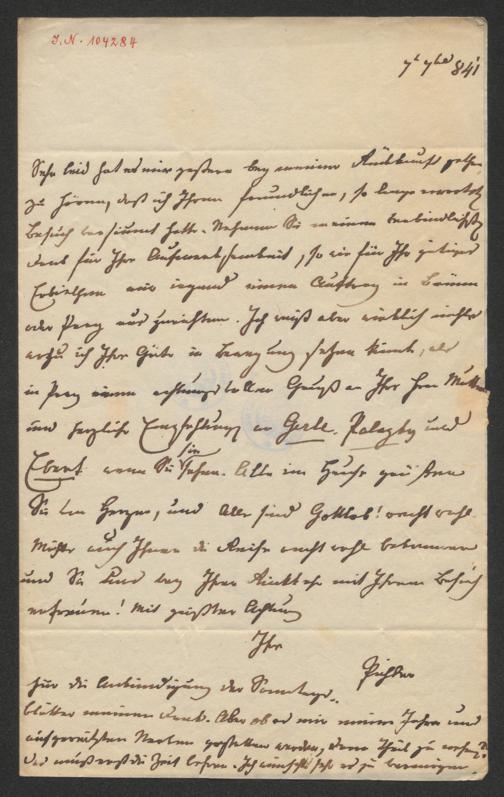 I. N. 104284
7t 7ber 841
Sehr leid hat es mir gestern bey meiner Rückkunft gethan
zu hören, daß ich Ihren freundlichen, so lange erwarteten
Besuch versäumt hatte. Nehmen Sie meinen verbindlichsten
Dank für Ihre Aufmerksamkeit, so wie für Ihr gütiges
Erbiethen mir irgend einen Auftrag in Brünn
oder Prag auszurichten. Ich weiß aber wirklich nichts
wozu ich Ihre Güte in Bewegung setzen könnte, als
in Prag einen achtungsvollen Gruß an Ihre Frau Mutter
und herzliche Empfehlung an Gerle, Palazky und
Ebert wenn Sie sie sehen. Alle im Hause grüßen
Sie von Herzen, und Alle sind Gottlob! recht wohl.
Möchte auch Ihnen die Reise recht wohl bekommen
und Sie uns bey Ihrer Rückkehr mit Ihrem Besuch
erfreuen! Mit größter Achtung
Ihre
Pichler
Für die Ankündigung der Sonntags-
blätter meinen Dank. Aber ob es mir meine Jahre und
aufgereizten Nerven gestatten werden, daran Theil zu nehmen?
das muß erst die Zeit lehren. Ich wünschte sehr es zu